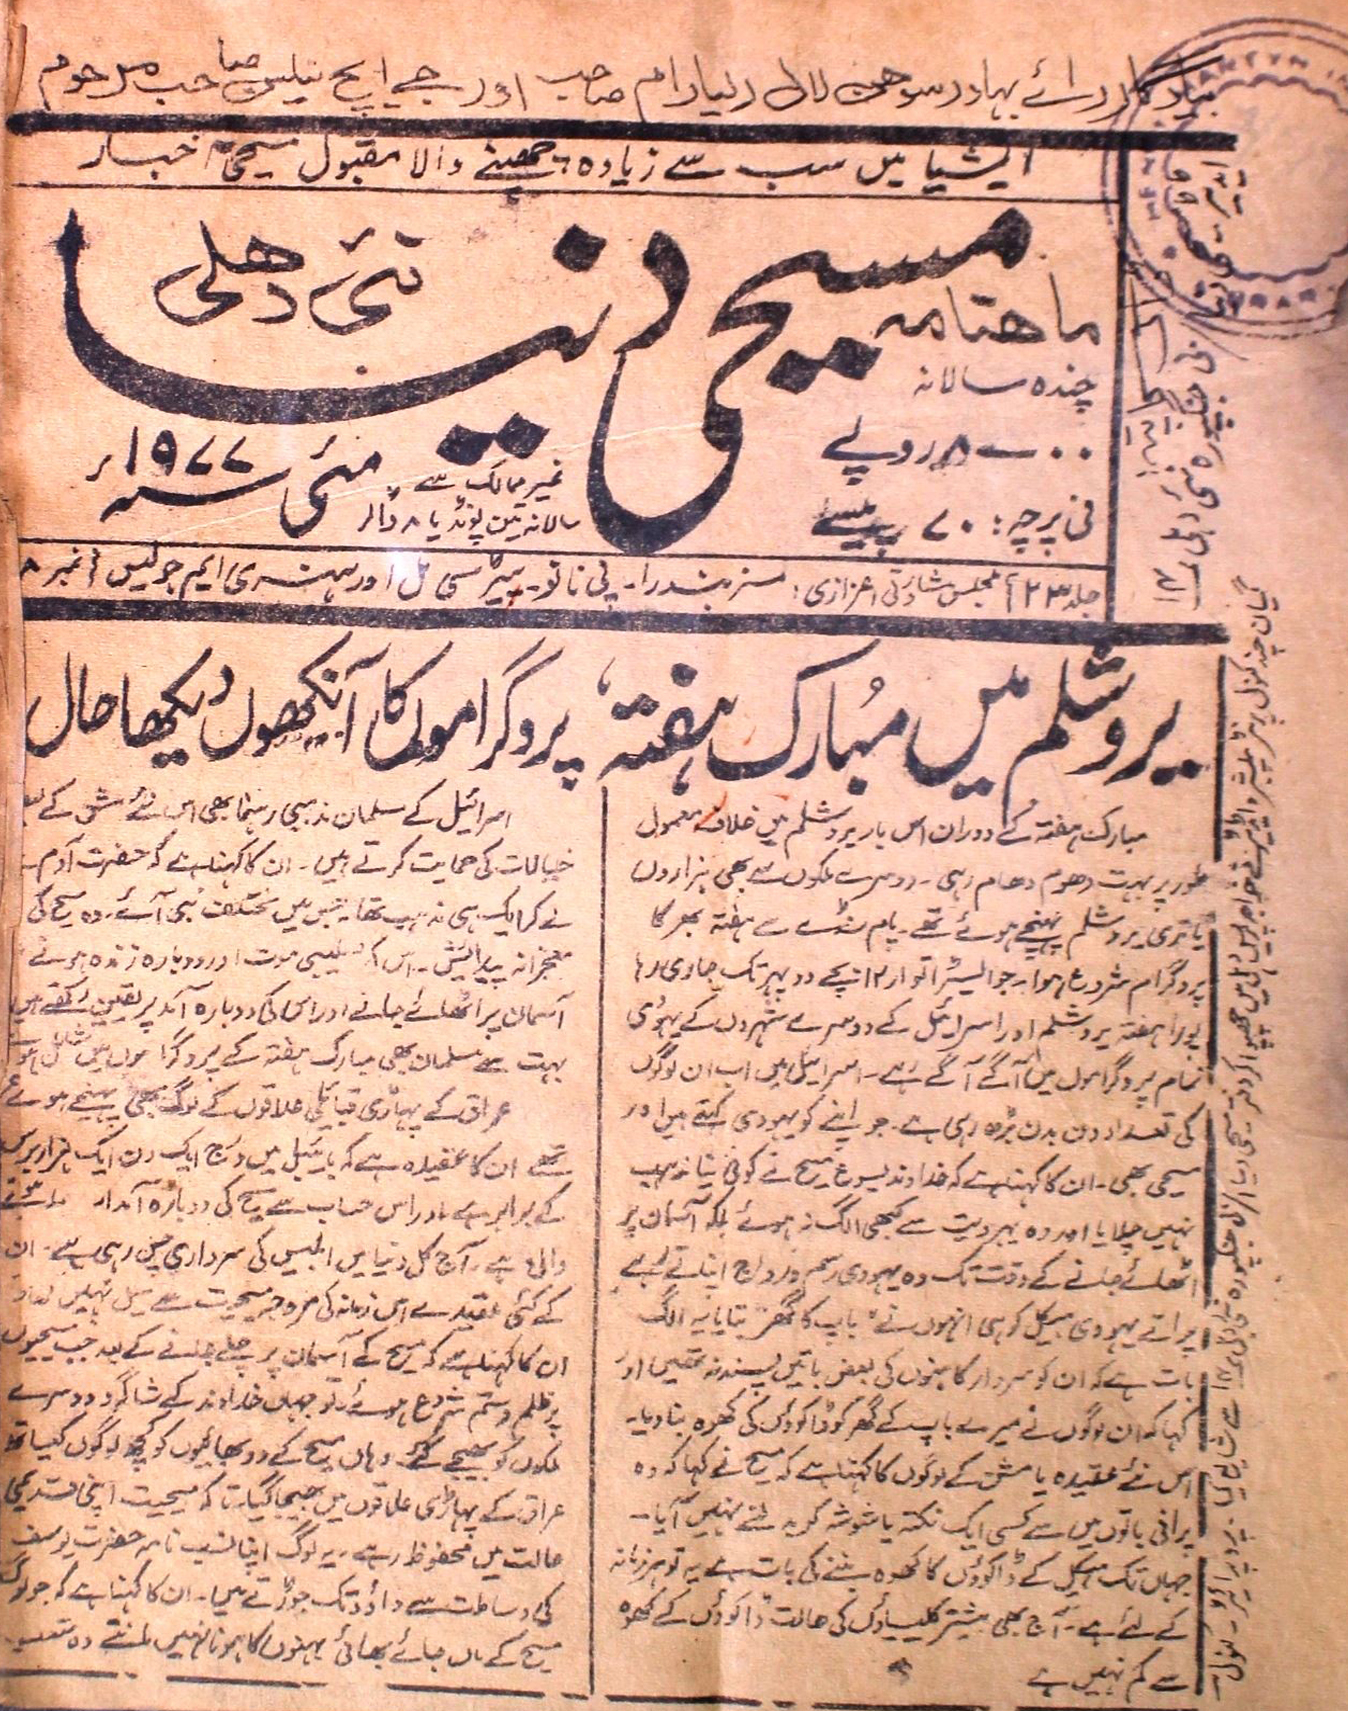 بیادگار رائے بہادر سوہن لال رلیا رام صاحب اور جے ایچ نیلس صاحب مرحوم
ایشیا میں سب سے زیادہ چھپنے والا مقبول مسیحی اخبار
ماهنامہ مسیحی دنیا نئی دهلی
چندہ سالانہ
۸ روپے
فی پرچہ: ۷۰ پیسے
غیر ممالک سے
سالانہ تین پونڈ یا ۸ ڈالر
مئی سنہ ۱۹۷۷ء
جلد ۲۳ مجلس مشاورتی اعزازی: مسز بندرا۔ پی ناتو۔ پیٹر سی مل اور ہنری ایم جولیس نمبر ۸
یروشلم میں مبارک هفتہ، پروگراموں کا آنکھوں دیکھا حال
مبارک ہفتہ کے دوران اس بار یروشلم میں خلاف معمول
طور پر بہت دھوم دھام رہی۔ دوسرے ملکوں سے بھی ہزاروں
یاتری یروشلم پہنچے ہوئے تھے۔ پام سنڈے سے ہفتہ بھر کا
پروگرام شروع ہوا۔ جو ایسٹر اتوار ۱۲ بجے دوپہر تک جاری رہا
پورا ہفتہ یروشلم اور اسرائیل کے دوسرے شہروں کے یہودی
تمام پروگراموں میں آگے آگے رہے۔ اسرائیل میں اب ان لوگوں
کی تعداد دن بدن بڑھ رہی ہے۔ جو اپنے کو یہودی کہتے ہیں اور
مسیحی بھی۔ ان کا کہنا ہے کہ خداوند یسوع مسیح نے کوئی نیا مذہب
نہیں چلایا اور وہ یہودیت سے کبھی الگ نہ ہوئے بلکہ آسمان پر
اٹھائے جانے کے وقت تک وہ یہودی رسم و رواج اپناتے رہے
پرانے یہودی ہیکل کو ہی انہوں نے "باپ کا گھر" بتایا یہ الگ
بات ہے کہ ان کو سردار کاہنوں کی بعض باتیں پسند نہ تھیں اور
کہا کہ ان لوگوں نے میرے باپ کے گھر کو ڈاکوؤں کی کھوہ بنا دیا۔
اس نئے عقیدہ یا مشن کے لوگوں کا کہنا ہے کہ مسیح نے کہا کہ وہ
پرانی باتوں میں سے کسی ایک نکتہ یا شوشہ کو بدلنے نہیں آیا۔
جہاں تک ہیکل کے ڈاکوؤں کا کھوہ بننے کی بات ہے یہ تو ہر زمانہ
کے لئے ہے۔ آج بھی بیشتر کلیسیاؤں کی حالت ڈاکوؤں کے کھوہ
سے کم نہیں ہے
اسرائیل کے مسلمان مذہبی رہنما بھی اس نئے مشن کے
خیالات کی حمایت کرتے ہیں۔ ان کا کہنا ہے کہ حضرت آدم سے
لے کر ایک ہی مذہب تھا۔ جس میں مختلف نبی آئے۔ وہ مسیح کی
معجزانہ پیدائش۔ اس کی صلیبی موت اور دوبارہ زندہ ہونے
آسمان پر اٹھائے جانے اور اس کی دوبارہ آمد پر یقین رکھتے ہیں
بہت سے مسلمان بھی مبارک ہفتہ کے پروگراموں میں شامل ہوئے
عراق کے پہاڑی قبائلی علاقوں کے لوگ بھی پہنچے ہوئے
تھے ان کا عقیدہ ہے کہ بائیبل میں درج ایک دن ایک ہزار برس
کے برابر ہے اور اس حساب سے مسیح کی دوبارہ آمد ہونے
والی ہے۔ آج کل دنیا میں ابلیس کی سرداری چل رہی ہے۔ ان
کے کئی عقیدے اس زمانہ کی مروجہ مسیحیت سے میل نہیں
ان کا کہنا ہے کہ مسیح کے آسمان پر چلے جانے کے بعد جب مسیحیوں
پر ظلم و ستم شروع ہوئے۔ تو جہاں خداوند کے شاگرد دوسرے
ملکوں کو بھیجے گئے وہاں مسیح کے دو بھائیوں کو کچھ لوگوں کے ساتھ
عراق کے پہاڑی علاقوں میں بھیجا گیا۔ تاکہ مسیحیت اپنی قدیمی
حالت میں محفوظ رہے۔ یہ لوگ اپنا نسب نامہ حضرت یوسف
کی وساطت سے داؤد تک جوڑتے ہیں۔ ان کا کہنا ہے کہ جو لوگ
مسیح کے ماں جائے بھائی بہنوں کا ہونا نہیں مانتے وہ